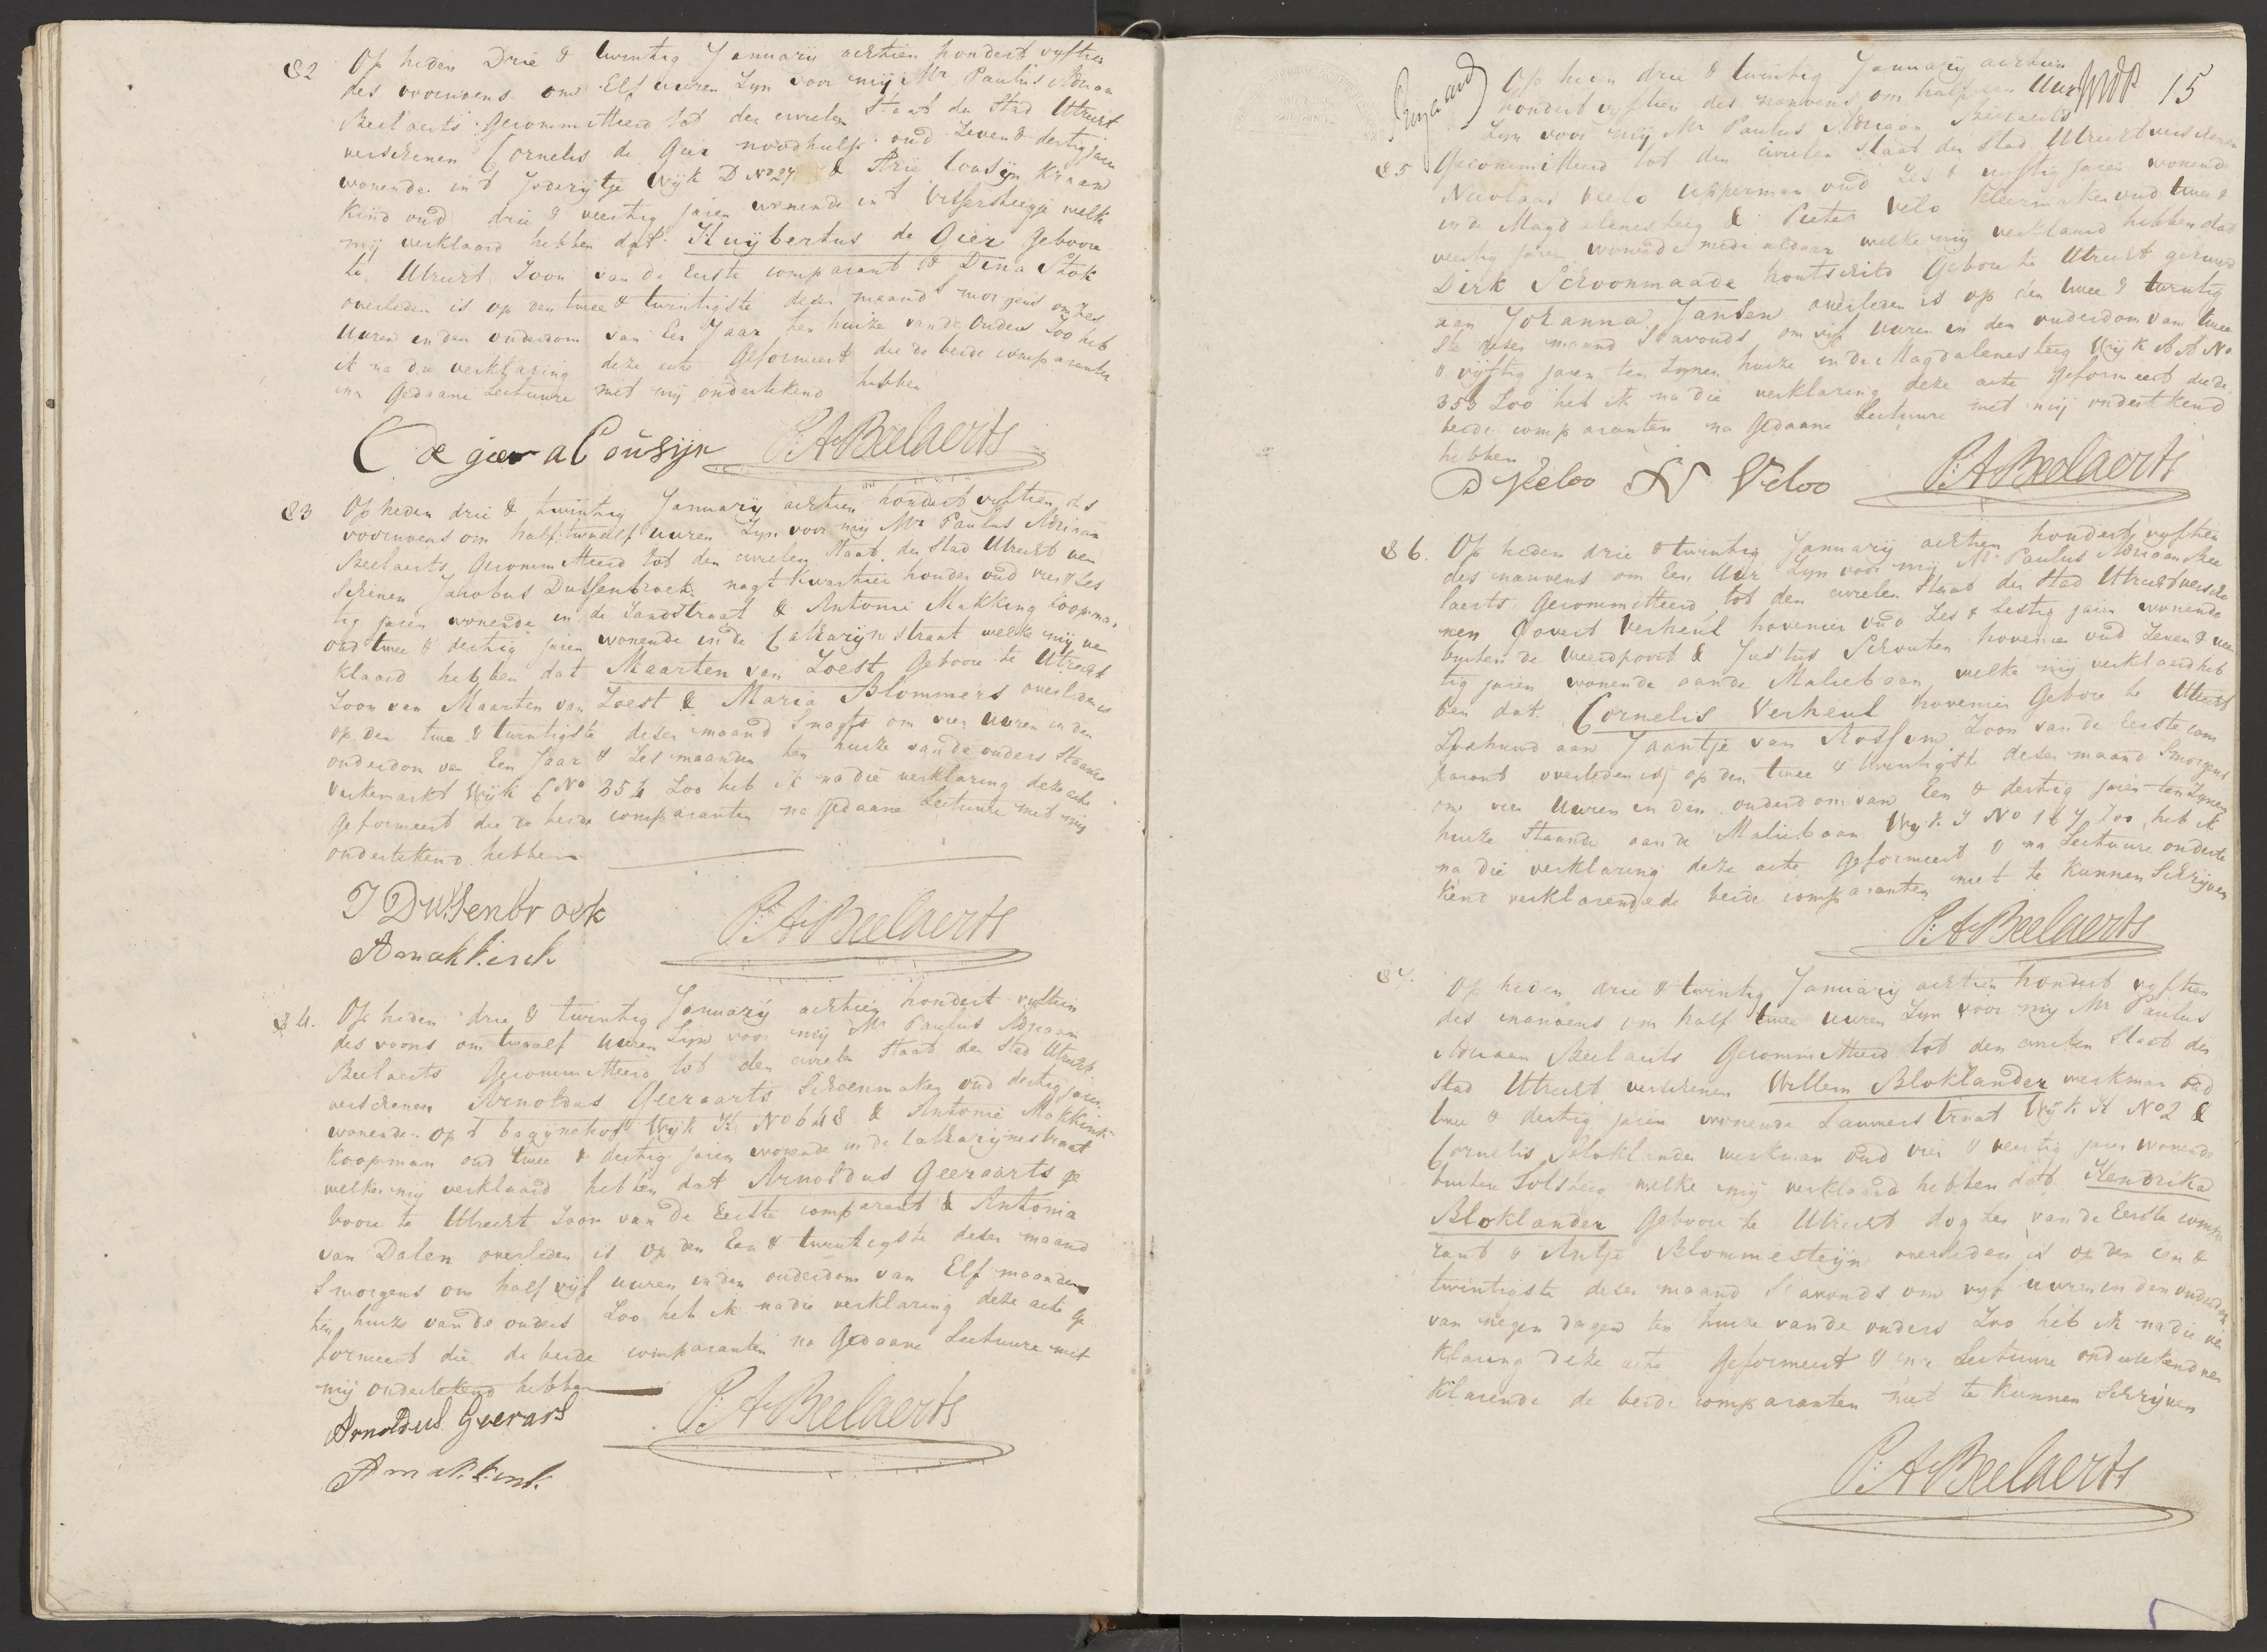 82 Op heden Drie & twintig Januarij achtien hondert vyftien
des voormens om Elf uuren Zyn voor mij Mr Paulus Adriaan
Beelaerts Gecommitteerd tot den civielen Staat der Stad Utrecht
verschenen Cornelis de Gier noodhulp oud Zeven & dertig jaren
wonende in't Wijk D No 27 & Arie Cousijn Kraan
Kind oud drie & veertig jaren wonende in't Vissersteegje welk
mij verklaard hebben dat Huijbertus de Gier Geboore
te Utrecht Zoon van de Eerste comparant & Dina Stok
overleden is op den twee & twintigste dezer maand smorgens om Zes
uuren in den ouderdom van Een Jaar ten huize van de Ouders Zoo heb
ik na die verklaring deze acte Geformeert die de beide comparanten
na Gedaane Lectuure met mij ondertekend hebben
C de gier a Cousijn P:A:Beelaerts
83 Op heden drie & twintig Januarij achtien hondert vyftien des
voormens om half twaelf uuren Zyn voor mij Mr Paulus Adriaan
Beelaerts Gecommitteerd tot den civielen Staat der Stad Utrecht ver
schenen Jacobus Dussenbroek nagt Kwartier houder oud vier & Zes
tig jaren wonende in de Zandstraat & Antonie Makking Koopman
oud twee & dertig jaren wonende in de Catharijnestraat welke mij ver
klaard hebben dat Maarten van Zoest Geboore te Utrecht
Zoon van Maarten van Zoest & Maria Blommers overleden is
op den twee & twintigste dezer maand Snagts om vier uuren in den
ouderdom van Een Jaar & Zes maanden ten huize van de ouders Staande
Varkemarkt Wijk C No 354 Zoo heb ik na die verklaring deze acte
Geformeert die de beide comparanten na Gedaane Lectuure met mij
ondertekend hebben
J Dussenbroek
Amakkink P:A:Beelaerts
84. Op heden drie & twintig Januarij achtien hondert vyftien
des voorns om twaalf uuren Zijn voor mij Mr Paulus Adriaan
Beelaerts Gecommitteerd tot den civielen Staat der Stad Utrecht
verschenen Arnoldus Geeraarts Schoenmaker oud dertig jaren
wonende op't bagijnehof Wijk K No 648 & Antonie Makkink
Koopman oud twee & dertig jaren wonende in de Catharijnestraat
welke mij verklaard hebben dat Arnoldus Geeraarts ge
boore te Utrecht Zoon van de Eerste comparant & Antonia
van Dalen overleden is op den Een & twintigste dezer maand
Smorgens om half vijf uuren in den ouderdom van Elf maanden
ten huize van de ouders Zoo heb ik na die verklaring deze acte Ge
formeert die de beide comparanten na Gedaane Lectuure met
mij ondertekend hebben
Arnoldus Geerars P:A:Beelaerts
Amakkink.
15
Op heden drie & twintig Januarij achtien
hondert vyftien des namvens om half een Uur
Zijn voor mij Mr Paulus Adriaan Beelaerts
85 Gecommitteerd tot den civielen Staat der Stad Utrecht verschenen
Nicolaas Velo oud Zes & vyftig jaren wonende
in de Magdalenesteeg & Pieter Velo Kleermaker oud twee &
veertig jaren wonende mede aldaar welke mij verklaard hebben dat
Dirk Schoonmaade Geboore te Utrecht gehuwd
aan Johanna Jansen overleden is op den twee & twintig
ste dezer maand Savonds om vijf uuren in den ouderdom van twee
& vijftig jaren ten Zijnen huize in de Magdalenesteeg Wijk A A No
353 Zoo heb ik na die verklaring deze acte Geformeert die de
beide comparanten na Gedaane Lectuure met mij ondertekend
hebben
P Veloo N Veloo P:A:Beelaerts
86. Op heden drie & twintig Januarij achtien hondert vyftien
des namvens om Een Uur Zijn voor mij Mr Paulus Adriaan Bee
laerts Gecommitteerd tot den civielen Staat der Stad Utrecht versche
nen Govert Verheul hovenier oud Zes & Sestig jaren wonende
buiten de Weerdpoort & Justus Schouten hovenier oud Zeven & veer
tig jaren wonende aan de Maliebaan welke mij verklaard heb
ben dat Cornelis Verheul hovenier Geboore te Utrecht
Gehuwd aan Jaantje van Rossum Zoon van de Eerste com
parant overleden is op den twee & twintigste dezer maand Smorgens
om vier Uuren in den ouderdom van Een & dertig jaren ten Zijnen
huize Staande aan de Maliebaan Wijk I No 167 Zoo heb ik
na die verklaring deze acte Geformeert & na Lectuure onderte
kend verklarende de beide comparanten niet te Kunnen Schrijven
P:A:Beelaerts
87. Op heden drie & twintig Januarij achtien hondert vyftien
des namvens om half twee uuren Zyn voor mij Mr Paulus
Adriaan Beelaerts Gecommitteerd tot den civielen Staat der
Stad Utrecht verschenen Willem Bloklander werkman oud
twee & dertig jaren wonende Lauwerstraat Wijk H No 2 &
Cornelis Bloklander werkman oud vier & veertig jaren wonende
buiten Tolsteeg welke mij verklaard hebben dat Hendrika
Bloklander Geboore te Utrecht dogter van de Eerste compa
rant & Antje Blommesteijn overleden is op den een &
twintigste dezer maand S'avonds om vyf uuren in den ouderdom
van negen dagen ten huize van de ouders Zoo heb ik na die ver
klaring deze acte Geformeert & na Lectuure ondertekend ver
klarende de beide comparanten niet te Kunnen Schrijven
P:A:Beelaerts